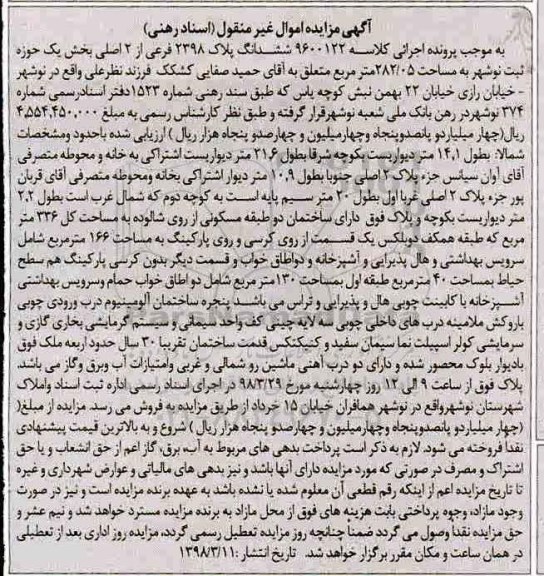 آگهی مزایده اموال غیر منقول (اسناد رهنی)
به موجب پرونده اجرائی کلاسه ۹۶۰۰۱۲۲ ششدانگ پلاک ۲۳۹۸ فرعی از ۲ اصلی بخش یک حوزه
ثبت نوشهر به مساحت ۲۸۲/۰۵متر مربع متعلق به آقای حمید صفایی کشکک فرزند نظرعلی واقع در نوشهر
- خیابان رازی خیابان ۲۲ بهمن نبش کوچه یاس که طبق سند رهنی شماره ۱۵۲۳دفتر اسنادرسمی شماره
۳۷۴ نوشهردر رهن بانک ملی شعبه نوشهرقرار گرفته و طبق نظر کارشناس رسمی به مبلغ ۴,۵۵۴,۴۵۰,۰۰۰
ریال(چهار میلیاردو پانصدوپنجاه وچهارمیلیون و چهارصدو پنجاه هزار ریال ) ارزیابی شده باحدود ومشخصات
شمالا: بطول ۱۴,۱ متر دیواریست بکوچه شرقا بطول ۲۱,۶ متر دیواریست اشتراکی به خانه و محوطه متصرفی
آقای آوان سیانس جزء پلاک ۲ اصلی جنوبا بطول ۱۰,۹ متر دیوار اشتراکی بخانه ومحوطه متصرفی آقای قربان
پور جزء پلاک ۲ اصلی غربا اول بطول ۲۰ متر سیم پایه است به کوچه دوم که شمال غرب است بطول ۲,۲
متر دیواریست بکوچه و پلاک فوق دارای ساختمان دو طبقه مسکونی از روی شالوده به مساحت کل ۳۳۶ متر
مربع که طبقه همکف دوبلکس یک قسمت از روی کرسی و روی پارکینگ به مساحت ۱۶۶ مترمربع شامل
سرویس بهداشتی و هال پذیرایی و آشپزخانه و دواطاق خواب و قسمت دیگر بدون کرسی پارکینگ هم سطح
حیاط بمساحت ۴۰ مترمربع طبقه اول بمساحت ۱۳۰متر مربع شامل دو اطاق خواب حمام وسرویس بهداشتی
آشپزخانه با کابینت چوبی هال و پذیرایی و تراس می باشد پنجره ساختمان آلومینیوم درب ورودی چوبی
باروکش ملامینه درب های داخلی چوبی سه لایه چینی کف واحد سیمانی و سیستم گرمایشی بخاری گازی و
سرمایشی کولر اسپیلت نما سیمان سفید و کنیتکتکس قدمت ساختمان تقریبا ۳۰ سال حدود اربعه ملک فوق
بادیوار بلوک محصور شده و دارای دو درب آهنی ماشین رو شمالی و غربی وامتیازات آب وبرق وگاز می باشد.
پلاک فوق از ساعت ۹ الی ۱۲ روز چهارشنبه مورخ ۹۸/۳/۲۹ در اجرای اسناد رسمی اداره ثبت اسناد واملاک
شهرستان نوشهرواقع در نوشهر همافران خیابان ۱۵ خرداد از طریق مزایده به فروش می رسد. مزایده از مبلغ(
(چهار میلیاردو پانصدوپنجاه وچهارمیلیون و چهارصدو پنجاه هزار ریال ) شروع و به بالاترین قیمت پیشنهادی
نقدا فروخته می شود. لازم به ذکر است پرداخت بدهی های مربوط به آب، برق، گاز اعم از حق انشعاب و یا حق
اشتراک و مصرف در صورتی که مورد مزایده دارای آنها باشد و نیز بدهی های مالیاتی و عوارض شهرداری و غیره
تا تاریخ مزایده اعم از اینکه رقم قطعی آن معلوم شده یا نشده باشد به عهده برنده مزایده است و نیز در صورت
وجود مازاد، وجوه پرداختی بابت هزینه های فوق از محل مازاد به برنده مزایده مسترد خواهد شد و نیم عشر و
حق مزایده نقداً وصول می گردد ضمناً چنانچه روز مزایده تعطیل رسمی گردد، مزایده روز اداری بعد از تعطیلی
در همان ساعت و مکان مقرر برگزار خواهد شد. تاریخ انتشار :۱۳۹۸/۳/۱۱